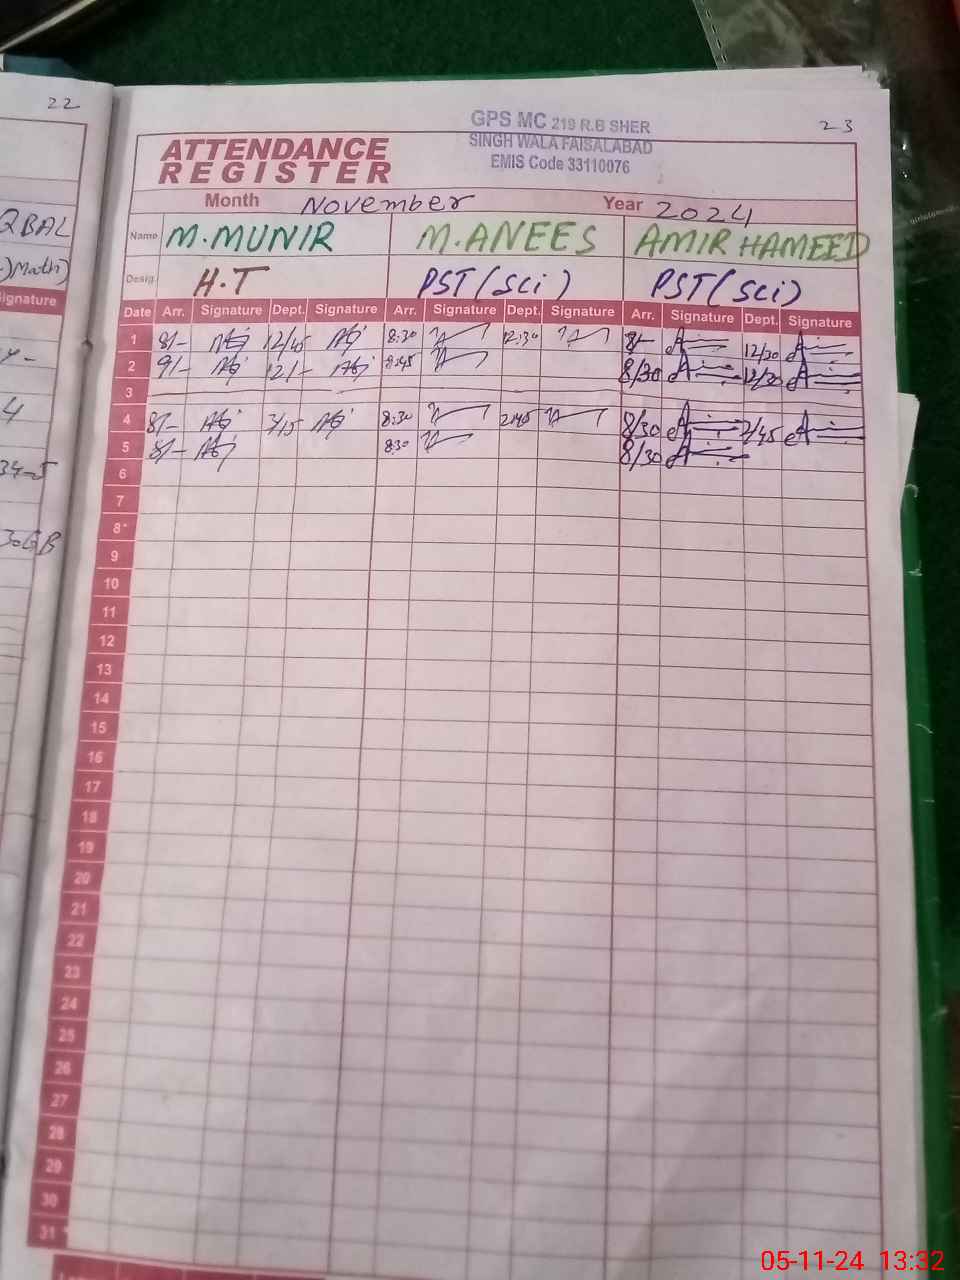 22
23
GPS MC 219 R.B SHER
SINGH WALA FAISALABAD
EMIS Code 33110076
ATTENDANCE
REGISTER
Month November Year 2024
QBAL
Name M.MUNIR M.ANEES AMIR HAMEED
Math)
Desig. H.T PST(Sci) PST(Sci)
Signature
Date Arr. Signature Dept. Signature Arr. Signature Dept. Signature Arr. Signature Dept. Signature
1 8/- 12/45 8:30 12:30 8/- 12/30
2 9/- 12/- 8:45 8/30 12/30
3
4 8/- 8:30 2:45 8/30 2/45
5 8/- 8:30 8/30
4
34-5
6
7
8
9
10
11
12
13
14
15
16
17
18
19
20
21
22
23
24
25
26
27
28
29
30
31
05-11-24 13:32